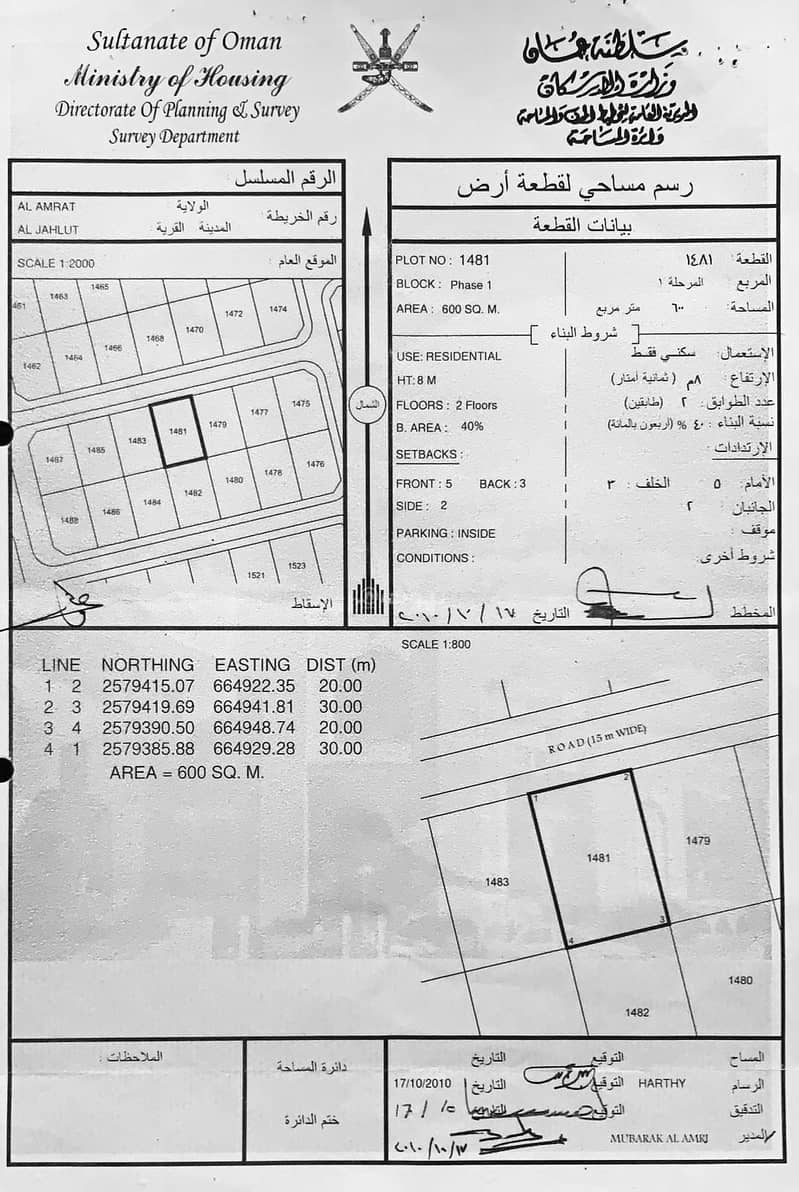 Sultanate of Oman
Ministry of Housing
Directorate Of Planning & Survey
Survey Department
سلطنة عمان
وزارة الإسكان
المديرية العامة للتخطيط والمساحة
دائرة المساحة
الرقم المسلسل
AL AMRAT الولاية
رقم الخريطة :
AL JAHLUT المدينة القرية :
SCALE 1:2000 الموقع العام :
1465
1463
1461
1474
1472
1470
1468
1466
1464
1462
1475
1477
1479
1481
1483
1485
1487
1476
1478
1480
1482
1484
1486
1488
1523
1521
الإسقاط
الشمال
رسم مساحي لقطعة أرض
بيانات القطعة
PLOT NO : 1481 القطعة : ١٤٨١
BLOCK : Phase 1 المربع : المرحلة ١
AREA : 600 SQ. M. المساحة : ٦٠٠ متر مربع
شروط البناء
USE: RESIDENTIAL الإستعمال: سكني فقط
HT: 8 M الإرتفاع : ٨م ( ثمانية أمتار)
FLOORS : 2 Floors عدد الطوابق : ٢ (طابقين)
B. AREA : 40% نسبة البناء : ٤٠ % (أربعون بالمائة)
SETBACKS : الإرتدادات :
FRONT : 5 BACK : 3 الأمام: ٥ الخلف : ٣
SIDE : 2 الجانبان : ٢
PARKING : INSIDE موقف :
CONDITIONS : شروط أخرى:
المخطط التاريخ ٢٠١٠/١٠/١٧
SCALE 1:800
LINE NORTHING EASTING DIST (m)
1 2 2579415.07 664922.35 20.00
2 3 2579419.69 664941.81 30.00
3 4 2579390.50 664948.74 20.00
4 1 2579385.88 664929.28 30.00
AREA = 600 SQ. M.
ROAD (15 m WIDE)
1
2
3
4
1479
1481
1483
1480
1482
الملاحظات :
دائرة المساحة
ختم الدائرة
المساح التوقيع التاريخ
الرسام HARTHY التوقيع التاريخ 17/10/2010
التدقيق التوقيع التاريخ 17/10
المدير MUBARAK AL AMRI ٢٠١٠/١٠/١٧